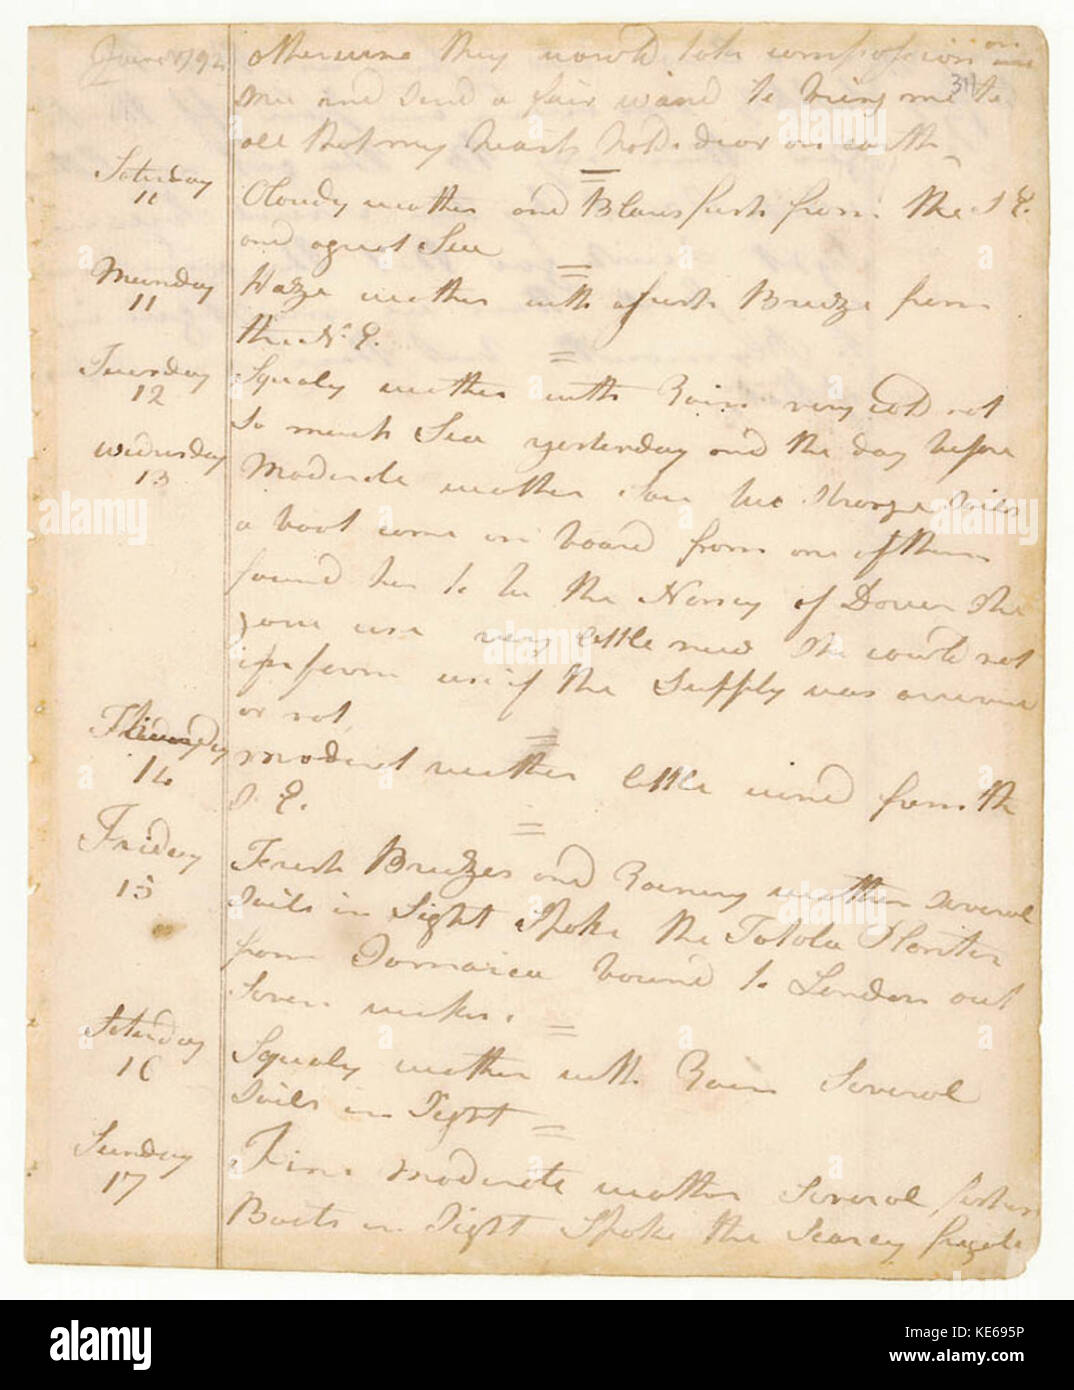 June 1792
otherwise they would take compassion on
me and send a fair wind to bring me to
311
all that my heart holds dear on earth
Saturday
10
Cloudy wether and Blows fresh from the S E.
and a great Sea
Munday
11
Haze wether with a fresh Breeze from
the N. E.
Tuesday
12
Squaly wether with Rain very cold not
So much Sea yesterday and the day before
Wednesday
13
Moderate wether Saw two Strange Sails
a boat came on board from one of them
found her to be the Nancy of Dover She
gave use very little news She could not
inform us if the Supply was arrived
or not
Thursday
14
moderat wether little wind from the
S. E.
Friday
15
Fresh Breezes and Raening wether Several
Sails in Sight Spoke the Totola Planter
from Jamaica bound to London out
Seven weekes.
Saturday
16
Squaly wether with Rain Several
Sails in Sight
Sunday
17
Fine moderate wether Several fishen
Boats in Sight Spoke the frigate
alamy
alamy
alamy
alamy
Image ID: KE695P
www.alamy.com